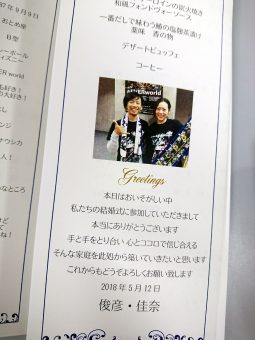 87年9月9日
おとめ座
B型
ER world
大好き!
ロインの炭火焼き
和風フォンドヴォーソース
一番だしで味わう鯛の塩麹茶漬け
薬味 香の物
デザートビュッフェ
コーヒー
ERworld
Greetings
本日はおいそがしい中
私たちの結婚式に参加していただきまして
本当にありがとうございます
手と手をとり合い 心とココロで信じ合える
そんな家庭を此処から築いていきたいと思います
これからもどうぞよろしくお願い致します
2018年5月12日
俊彦・佳奈